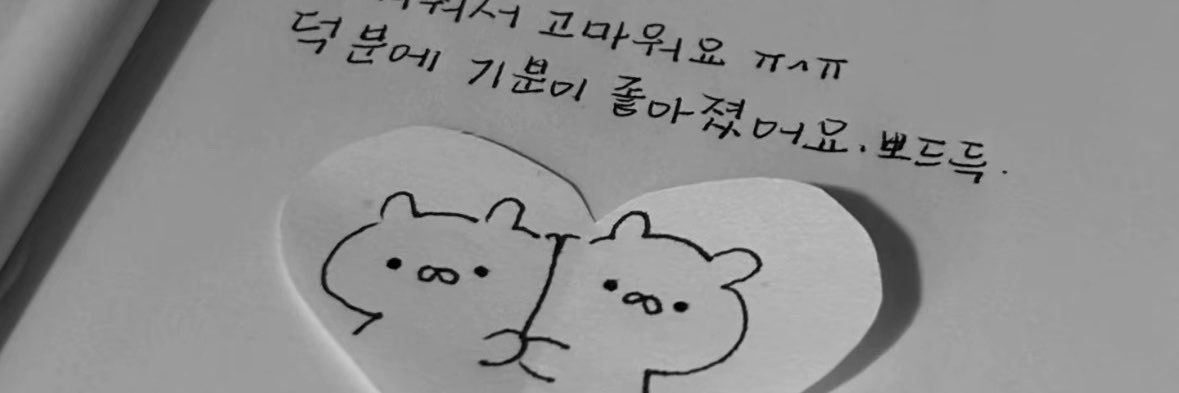 고마워요 ㅠㅅㅠ
덕분에 기분이 좋아졌어요. 뽀드득.